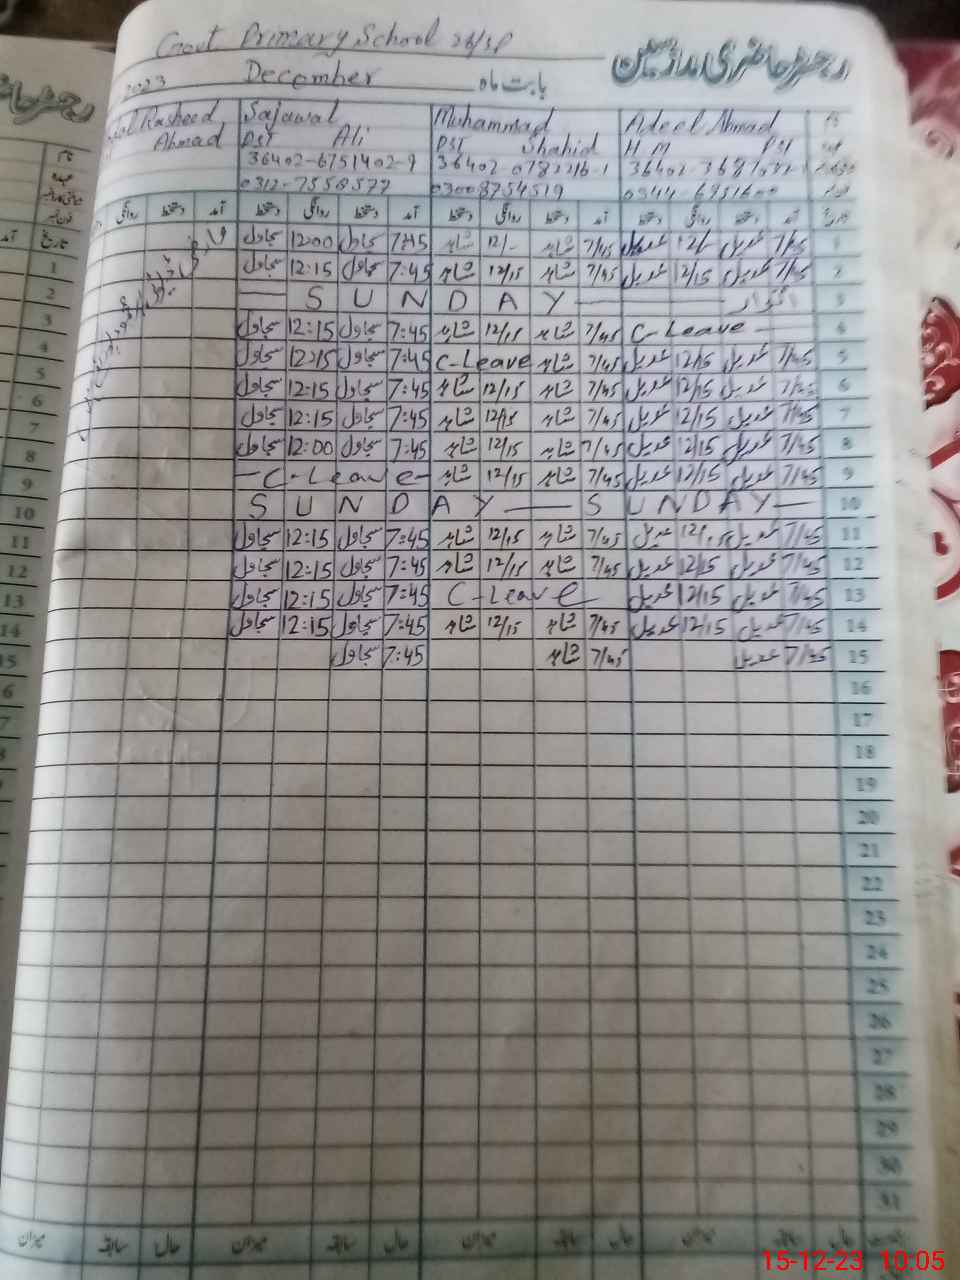 Govt Primary School 26/SP
رجسٹر حاضری ملازمین
2023 December بابت ماہ
Rasheed Sajawal Muhammad Adeel Ahmad نام
Ahmad PST Ali PST Shahid H.M PST عہدہ
36402-6751402-9 36402 0782216-1
0312-7558577 03008754519
روانگی دستخط آمد دستخط روانگی دستخط آمد دستخط روانگی دستخط آمد دستخط روانگی دستخط آمد تاریخ
سجاول 12:00 سجاول 7:45 شاہد 12/- شاہد 7/45 عدیل 12/- عدیل 7/45 1
سجاول 12:15 سجاول 7:45 شاہد 12/15 شاہد 7/45 عدیل 12/15 عدیل 7/45 2
SUNDAY اتوار 3
سجاول 12:15 سجاول 7:45 شاہد 12/15 شاہد 7/45 C-Leave 4
سجاول 12:15 سجاول 7:45 C-Leave شاہد 7/45 عدیل 12/15 عدیل 7/45 5
سجاول 12:15 سجاول 7:45 شاہد 12/15 شاہد 7/45 عدیل 12/15 عدیل 7/45 6
سجاول 12:15 سجاول 7:45 شاہد 12/15 شاہد 7/45 عدیل 12/15 عدیل 7/45 7
سجاول 12:00 سجاول 7:45 شاہد 12/15 شاہد 7/45 عدیل 12/15 عدیل 7/45 8
-C-Leave- شاہد 12/15 شاہد 7/45 عدیل 12/15 عدیل 7/45 9
SUNDAY — SUNDAY — 10
سجاول 12:15 سجاول 7:45 شاہد 12/15 شاہد 7/45 عدیل 12/15 عدیل 7/45 11
سجاول 12:15 سجاول 7:45 شاہد 12/15 شاہد 7/45 عدیل 12/15 عدیل 7/45 12
سجاول 12:15 سجاول 7:45 C-Leave عدیل 12/15 عدیل 7/45 13
سجاول 12:15 سجاول 7:45 شاہد 12/15 شاہد 7/45 عدیل 12/15 عدیل 7/45 14
سجاول 7:45 شاہد 7/45 عدیل 7/45 15
16
17
18
19
20
21
22
23
24
25
26
27
28
29
30
31
میزان سابقہ حال میزان سابقہ حال میزان سابقہ حال میزان سابقہ حال
15-12-23 10:05